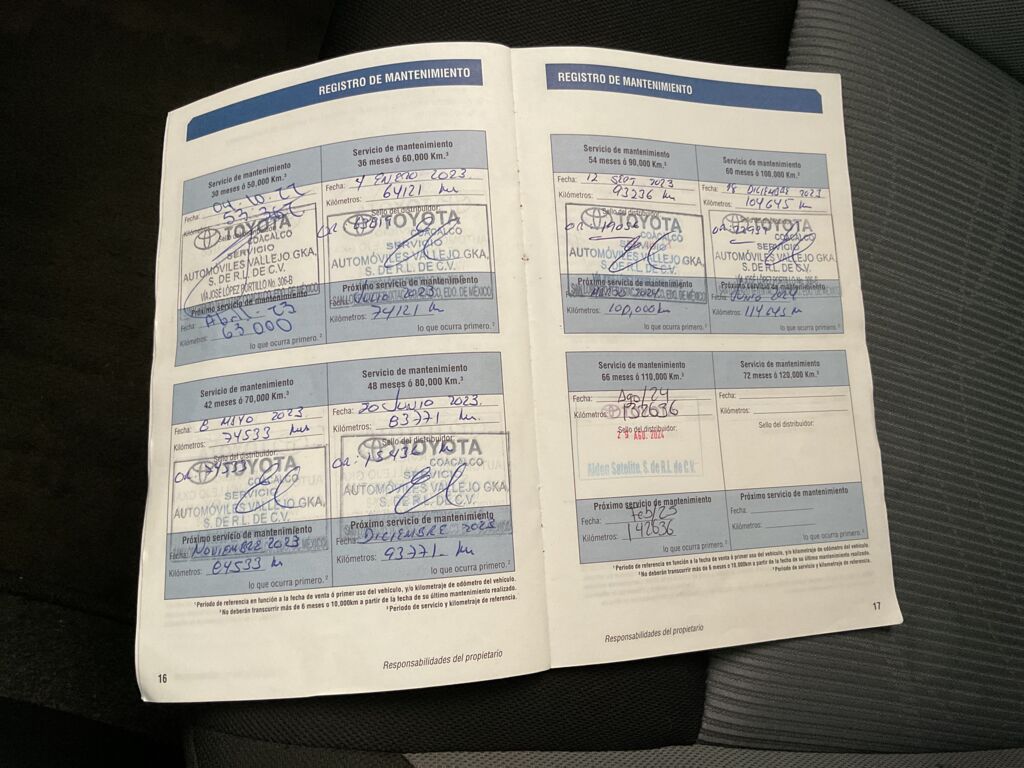 REGISTRO DE MANTENIMIENTO
Servicio de mantenimiento
30 meses ó 50,000 Km.³
Fecha: 04-10-22
Kilómetros:
Sello del distribuidor:
TOYOTA
COACALCO
SERVICIO
AUTOMÓVILES VALLEJO GKA,
S. DE R.L. DE C.V.
VIA JOSÉ LÓPEZ PORTILLO No. 306-B
Próximo servicio de mantenimiento
Fecha: Abril-23
Kilómetros: 63 000
lo que ocurra primero.²
Servicio de mantenimiento
36 meses ó 60,000 Km.³
Fecha: 4 ENERO 2023
Kilómetros: 64121 km
Sello del distribuidor:
TOYOTA
COACALCO
SERVICIO
AUTOMÓVILES VALLEJO GKA,
S. DE R.L. DE C.V.
Próximo servicio de mantenimiento
Fecha: JULIO 2023
Kilómetros: 74121 km
lo que ocurra primero.²
Servicio de mantenimiento
42 meses ó 70,000 Km.³
Fecha: 8 MAYO 2023
Kilómetros: 74533 km
Sello del distribuidor:
TOYOTA
COACALCO
SERVICIO
AUTOMÓVILES VALLEJO GKA,
S. DE R.L. DE C.V.
Próximo servicio de mantenimiento
Fecha: NOVIEMBRE 2023
Kilómetros: 84533 km
lo que ocurra primero.²
Servicio de mantenimiento
48 meses ó 80,000 Km.³
Fecha: 20 JUNIO 2023
Kilómetros: 83771 km
Sello del distribuidor:
TOYOTA
COACALCO
SERVICIO
AUTOMÓVILES VALLEJO GKA,
S. DE R.L. DE C.V.
Próximo servicio de mantenimiento
Fecha: DICIEMBRE 2023
Kilómetros: 93771 km
lo que ocurra primero.²
¹ Periodo de referencia en función a la fecha de venta ó primer uso del vehículo, y/o kilometraje de odómetro del vehículo.
² No deberán transcurrir más de 6 meses o 10,000km a partir de la fecha de su último mantenimiento realizado.
³ Periodo de servicio y kilometraje de referencia.
Responsabilidades del propietario
16
REGISTRO DE MANTENIMIENTO
Servicio de mantenimiento
54 meses ó 90,000 Km.³
Fecha: 12 SEPT 2023
Kilómetros: 93236 km
Sello del distribuidor:
TOYOTA
COACALCO
SERVICIO
AUTOMÓVILES VALLEJO GKA,
S. DE R.L. DE C.V.
Próximo servicio de mantenimiento
Fecha: MARZO 2024
Kilómetros: 100,000 km
lo que ocurra primero.²
Servicio de mantenimiento
60 meses ó 100,000 Km.³
Fecha: 18 DICIEMBRE 2023
Kilómetros: 104645 km
Sello del distribuidor:
TOYOTA
COACALCO
SERVICIO
AUTOMÓVILES VALLEJO GKA,
S. DE R.L. DE C.V.
Próximo servicio de mantenimiento
Fecha: JUNIO 2024
Kilómetros: 114645 km
lo que ocurra primero.²
Servicio de mantenimiento
66 meses ó 110,000 Km.³
Fecha: Ago/24
Kilómetros: 132636
Sello del distribuidor:
29 AGO. 2024
Alden Satelite, S. de R.L. de C.V.
Próximo servicio de mantenimiento
Fecha: Feb/25
Kilómetros: 142636
lo que ocurra primero.²
Servicio de mantenimiento
72 meses ó 120,000 Km.³
Fecha:
Kilómetros:
Sello del distribuidor:
Próximo servicio de mantenimiento
Fecha:
Kilómetros:
lo que ocurra primero.²
¹ Periodo de referencia en función a la fecha de venta ó primer uso del vehículo, y/o kilometraje de odómetro del vehículo.
² No deberán transcurrir más de 6 meses o 10,000km a partir de la fecha de su último mantenimiento realizado.
³ Periodo de servicio y kilometraje de referencia.
Responsabilidades del propietario
17